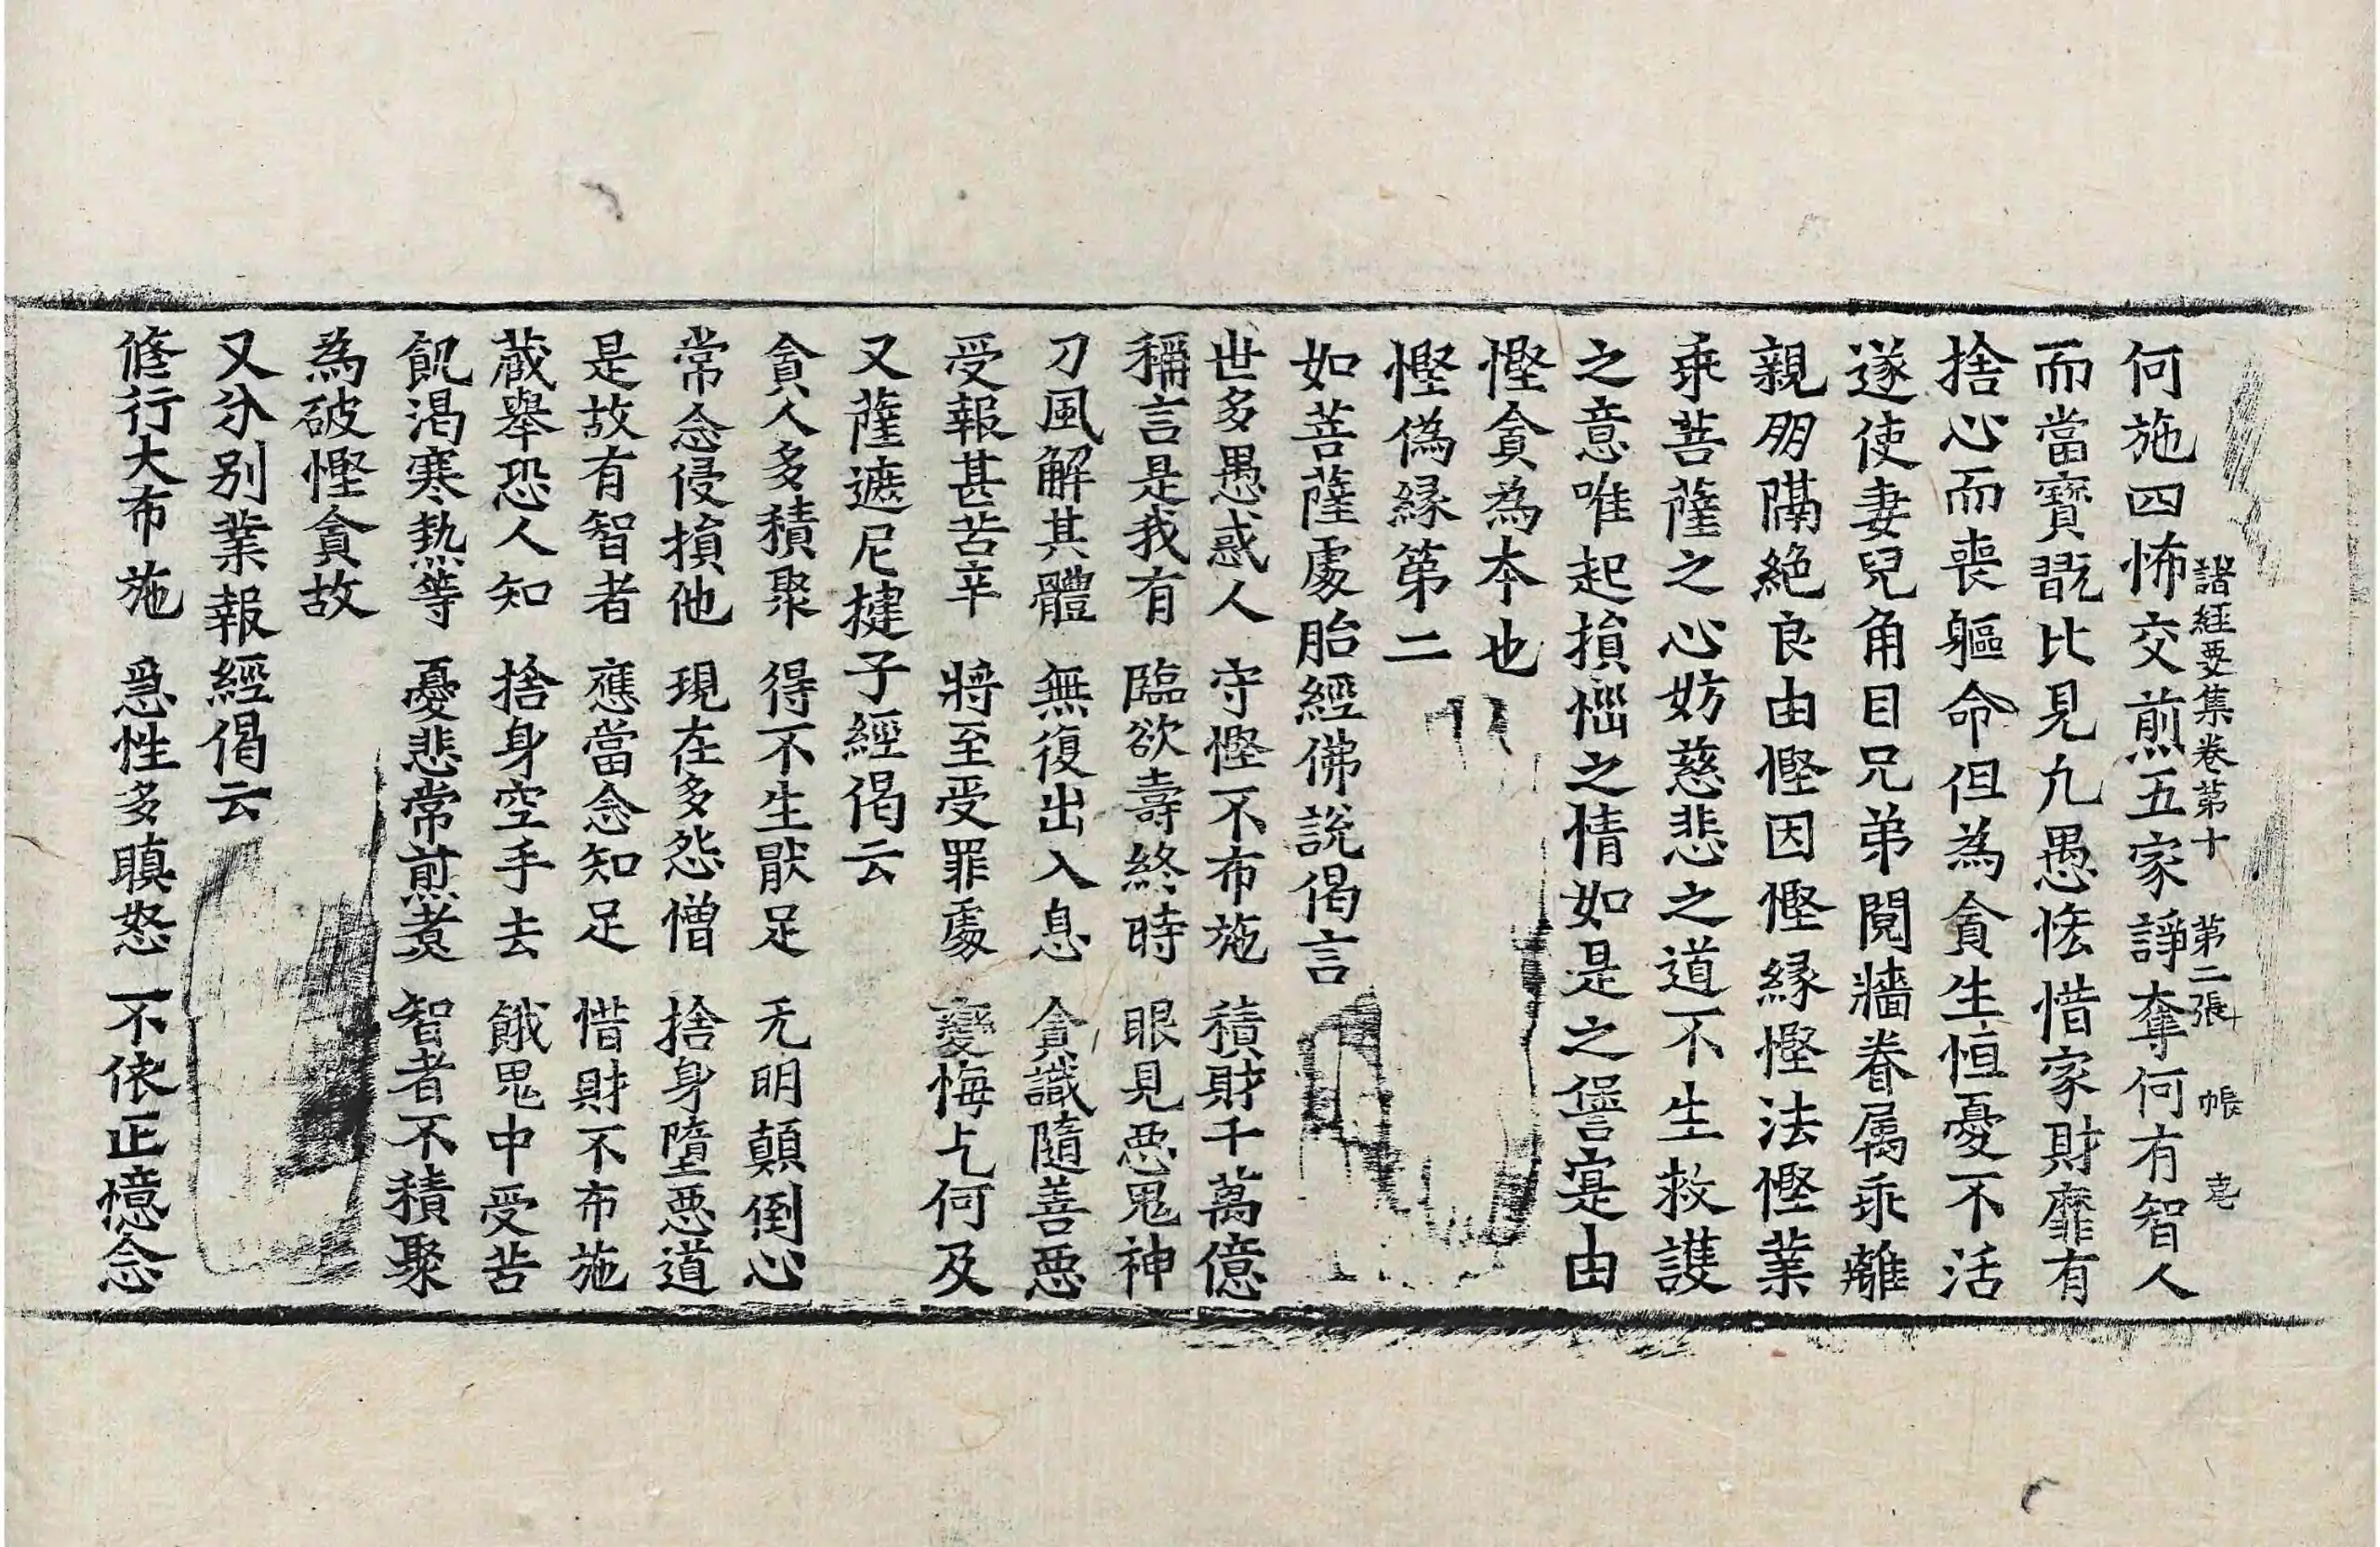 諸經要集卷第十 第二張 帳
何施四怖交煎五家諍奪何有智人
而當寳翫比見凢愚悋惜家財靡有
捨心而喪軀命但為貪生恒憂不活
遂使妻兒角目兄弟䦧牆眷屬乖離
親朋隔絶良由慳因慳縁慳法慳業
乖菩薩之心妨慈悲之道不生救護
之意唯起損惱之情如是之𠎝寔由
慳貪為本也
慳偽縁第二
如菩薩處胎經佛說偈言
世多愚惑人 守慳不布施 積財千萬億
稱言是我有 臨欲壽終時 眼見惡鬼神
刀風解其體 無復出入息 貪識隨善惡
受報甚苦辛 將至受罪處 變悔亡何及
又薩遮尼揵子經偈云
貪人多積聚 得不生猒足 无明顛倒心
常念侵損他 現在多怨憎 捨身墮惡道
是故有智者 應當念知足 惜財不布施
藏舉恐人知 捨身空手去 餓鬼中受苦
飢渴寒熱等 憂悲常煎煑 智者不積聚
為破慳貪故
又分別業報經偈云
脩行大布施 急性多瞋怒 不依正憶念